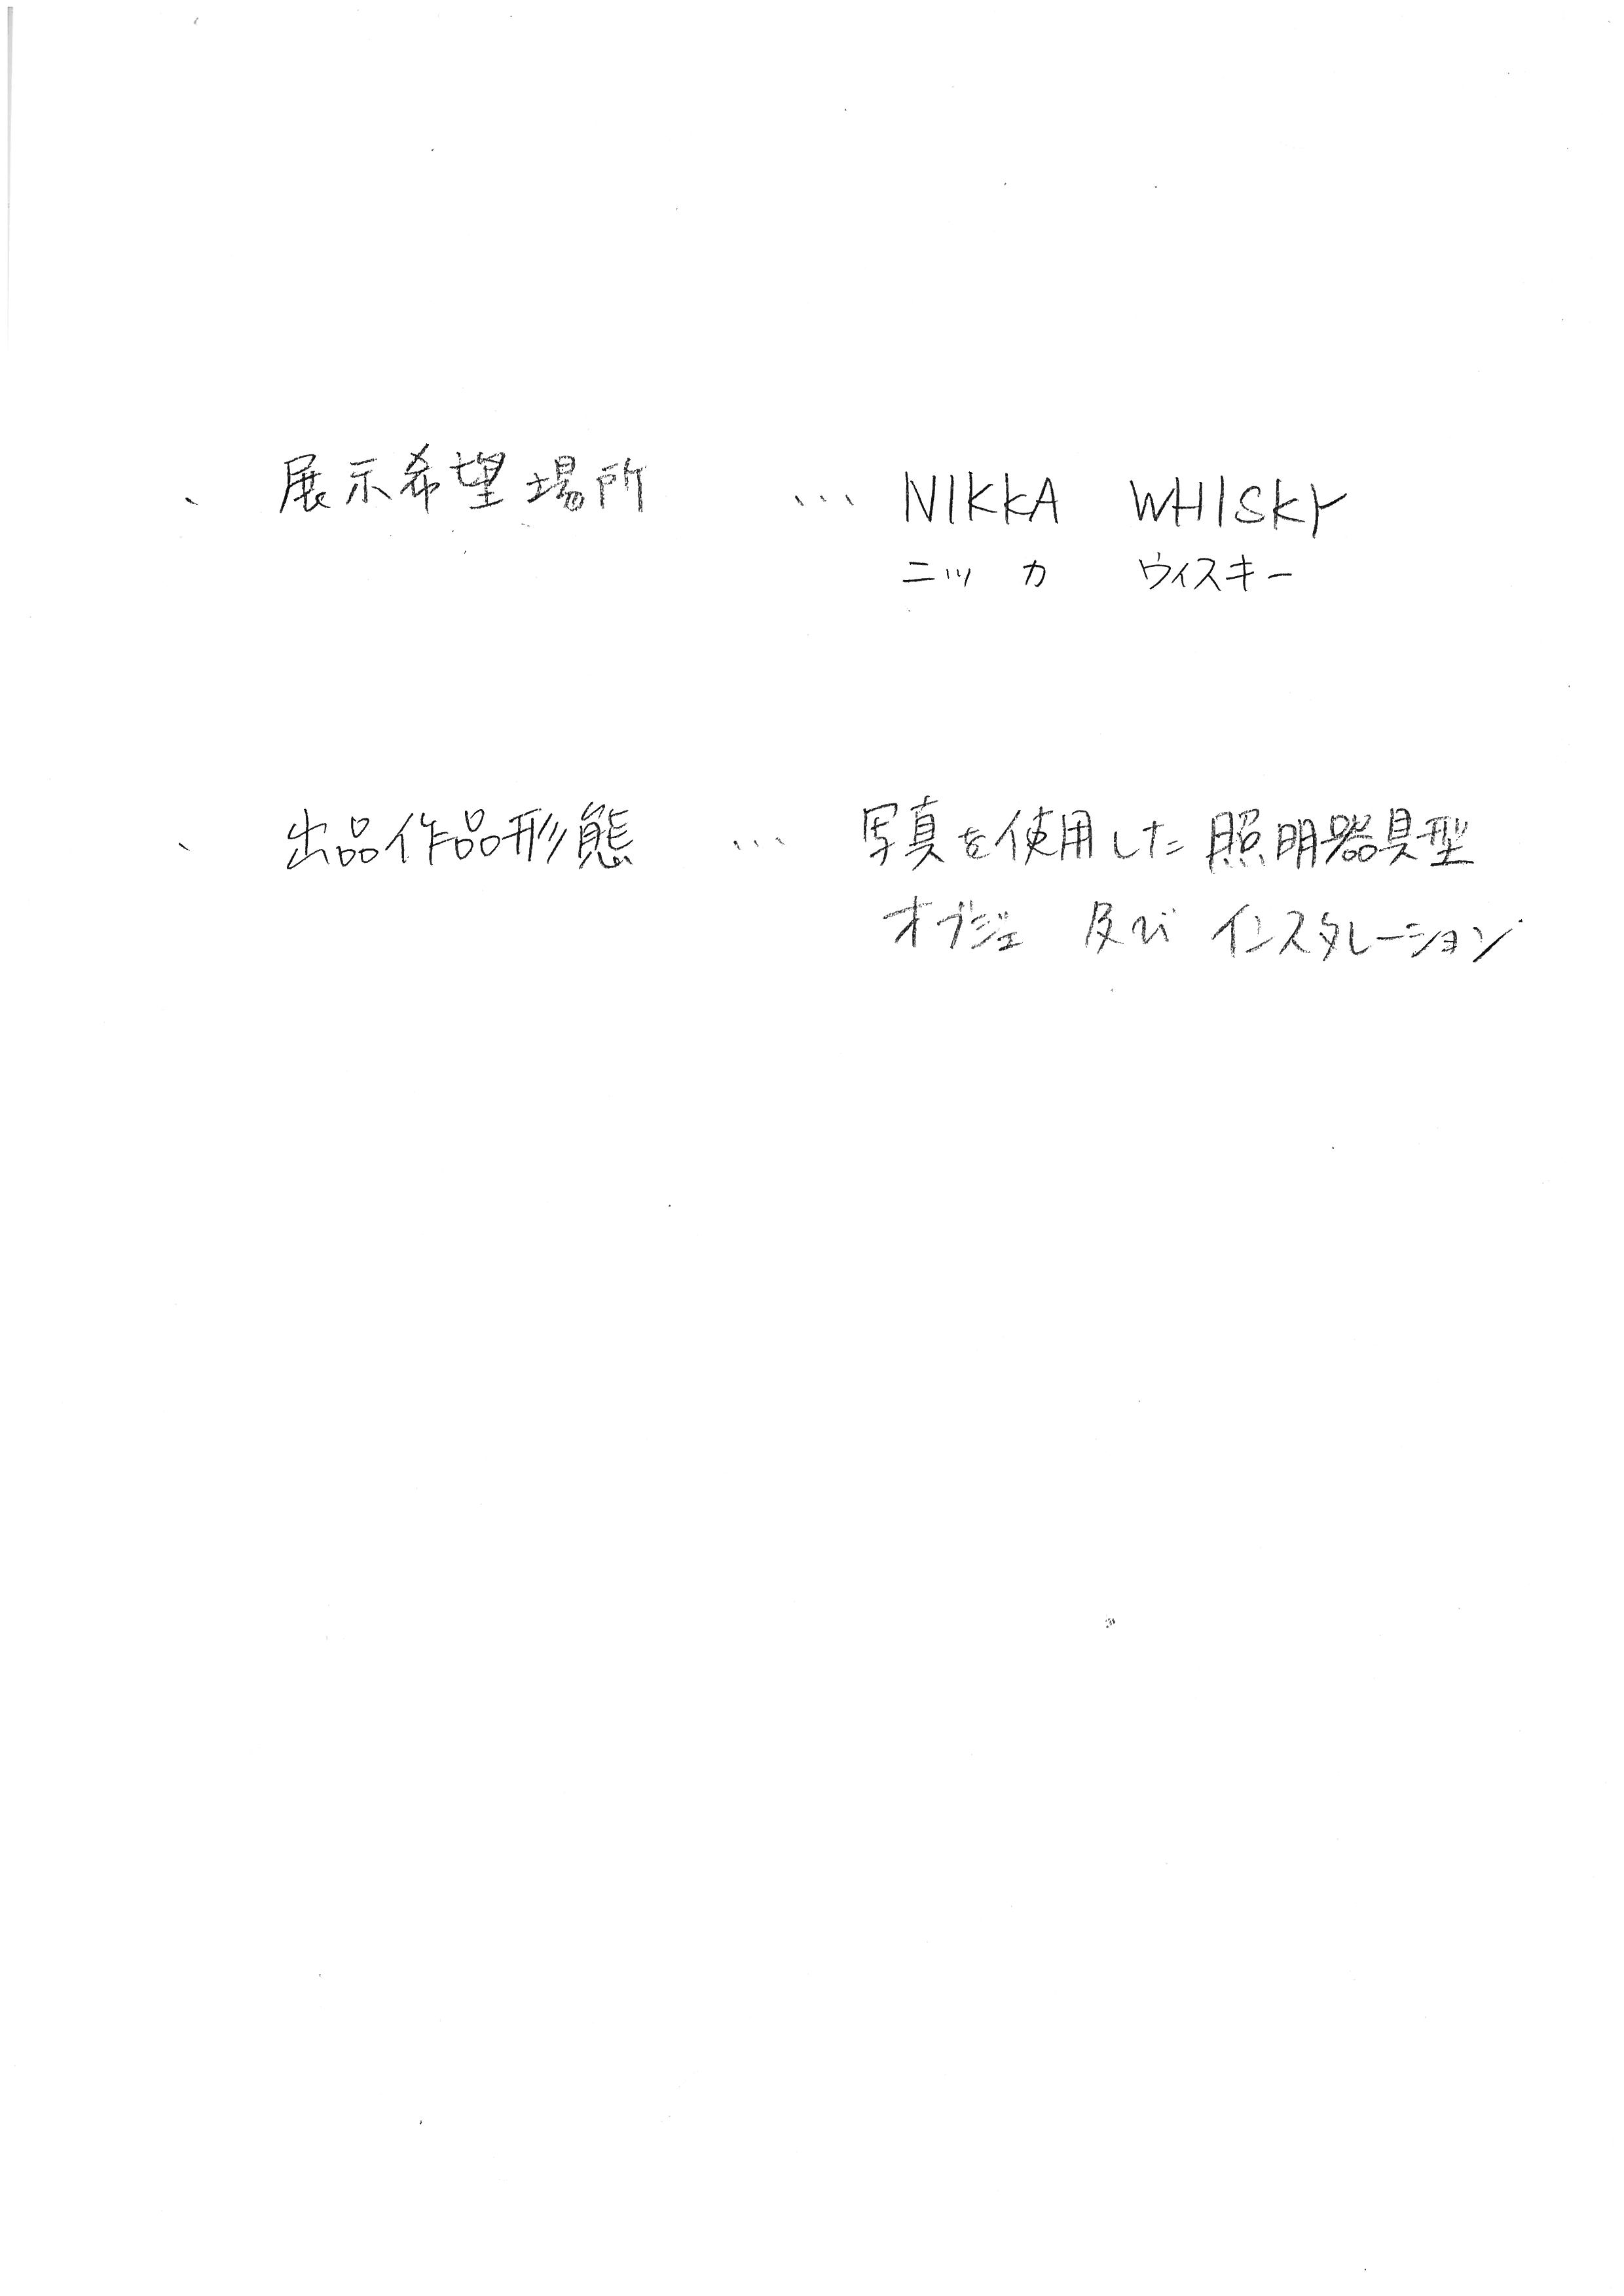 ・ 展示希望場所 … NIKKA WHISKY
ニッカ ウィスキー
・ 出品作品形態 … 写真を使用した照明器具型
オブジェ 及び インスタレーション